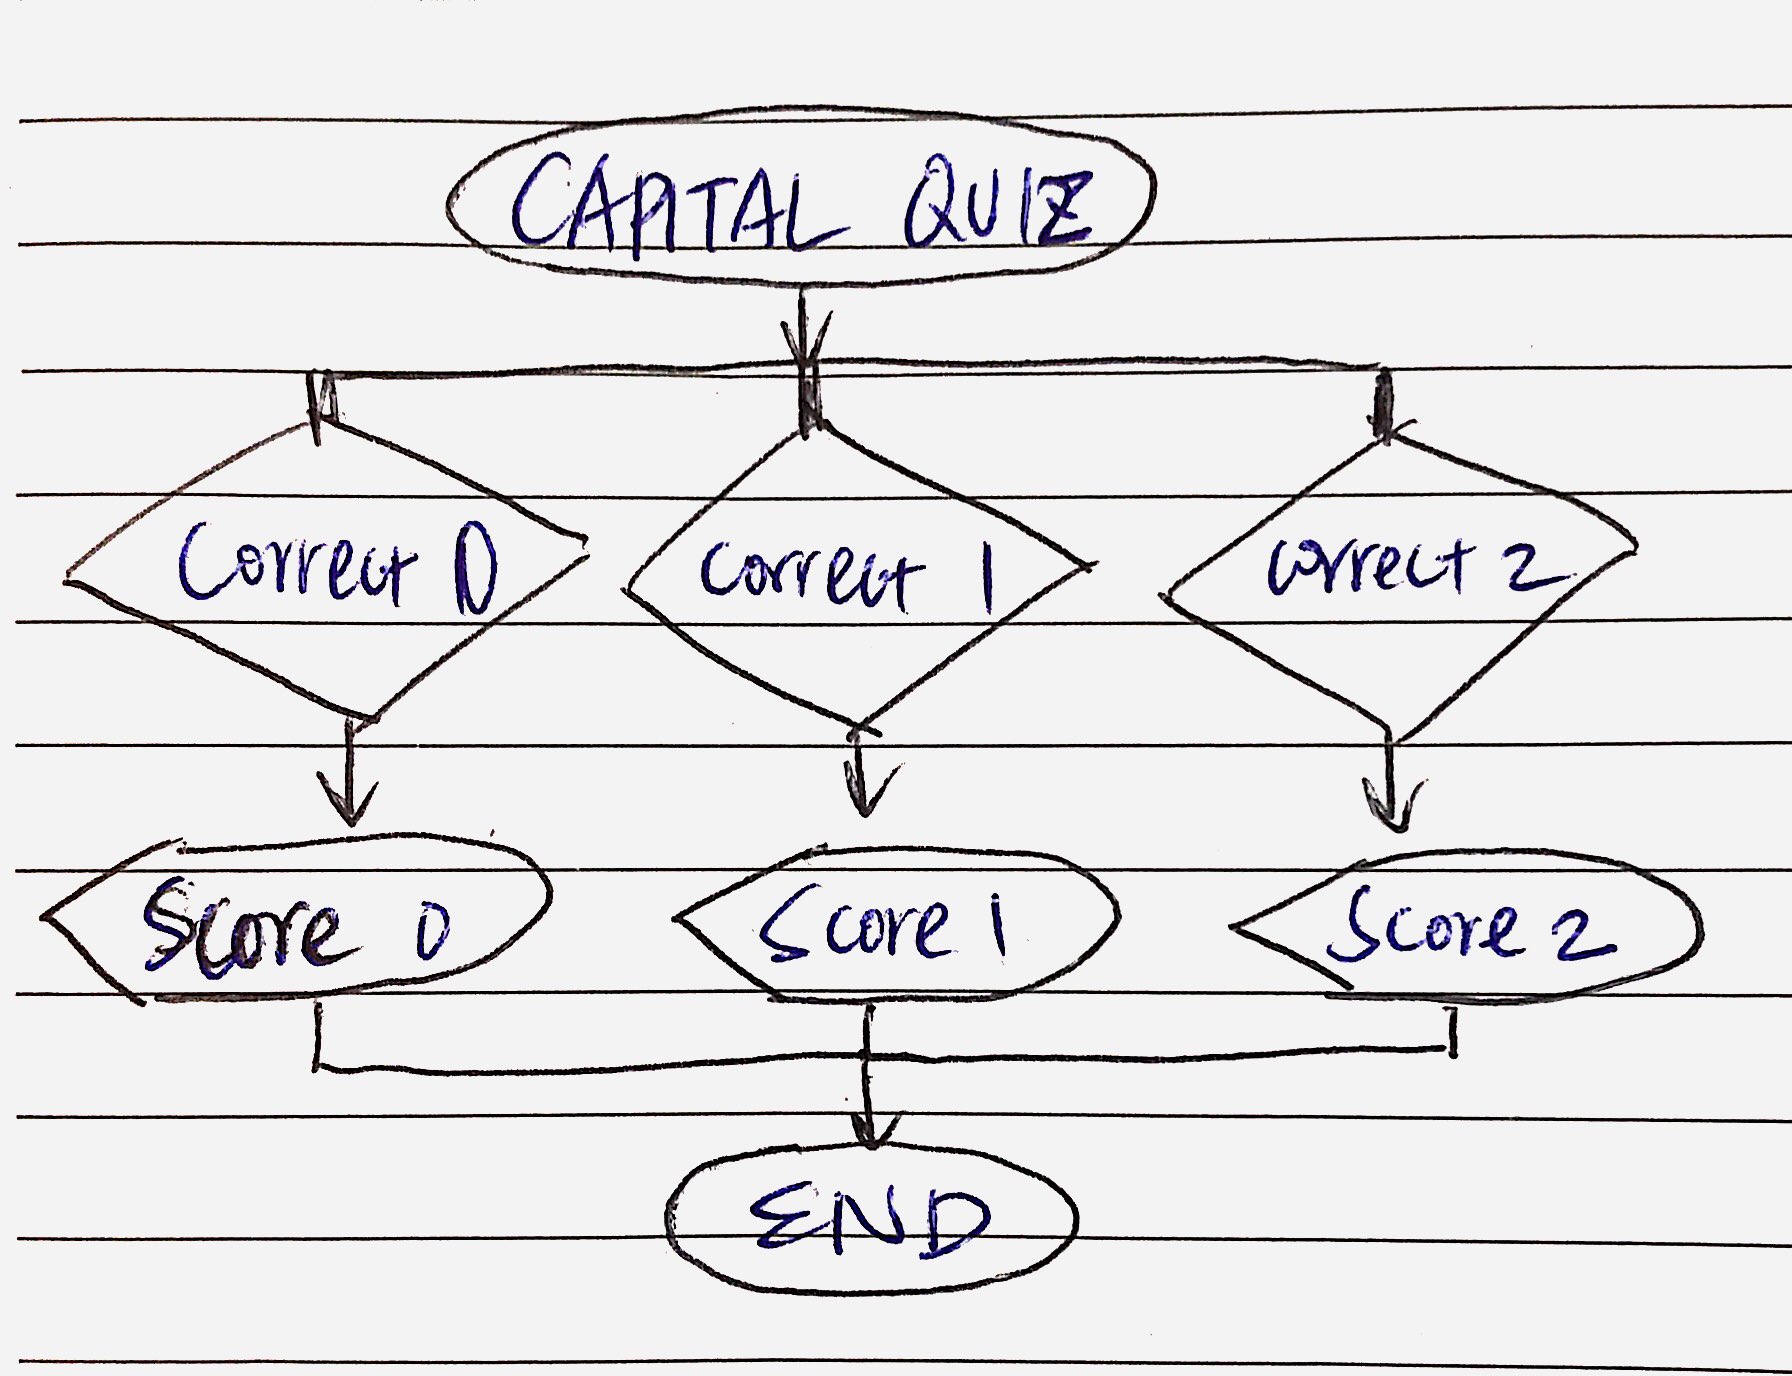 CAPITAL QUIZ
Correct 0
correct 1
correct 2
Score 0
Score 1
Score 2
END